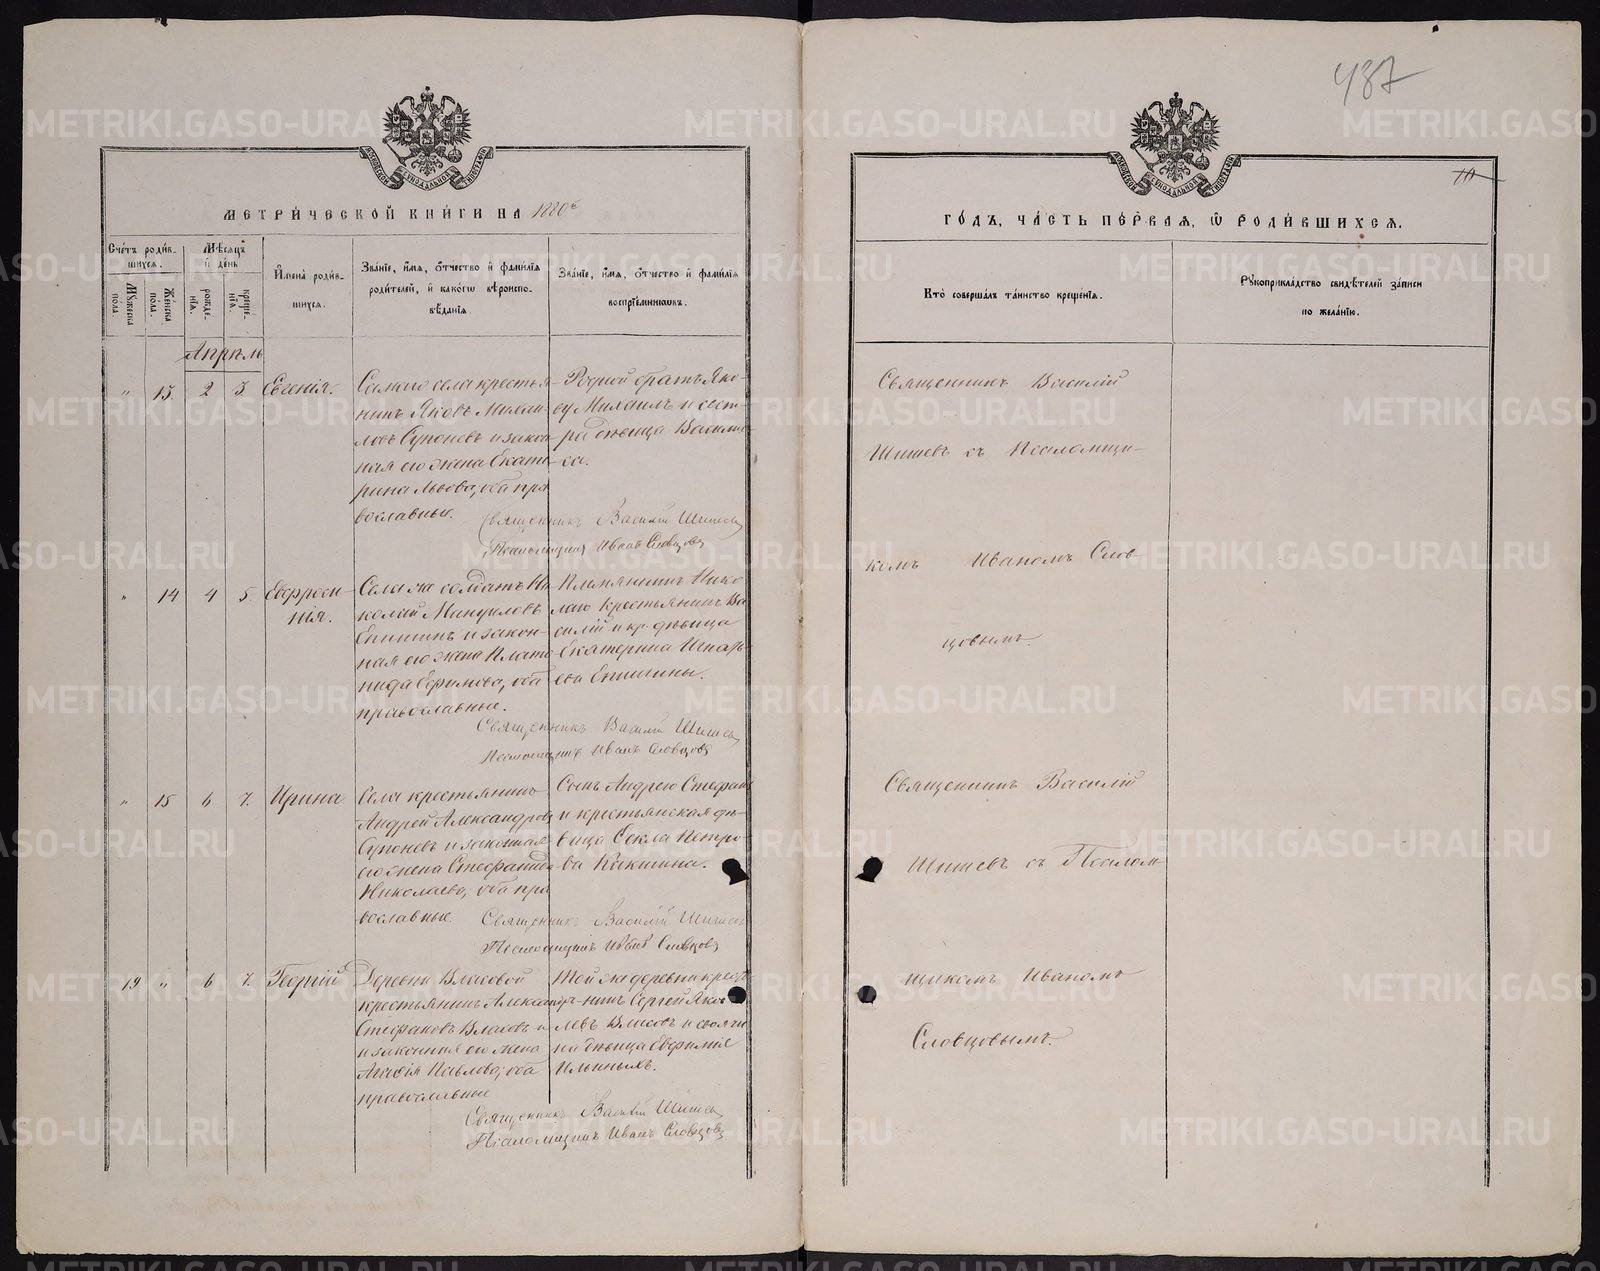 487
10
МОСКОВСКОЙ СѴНОДАЛЬНОЙ ТИПОГРАФІИ
МОСКОВСКОЙ СѴНОДАЛЬНОЙ ТИПОГРАФІИ
МЕТРИ́ЧЕСКОЙ КНИ́ГИ НА 1880й
ГО́ДЪ, ЧА́СТЬ ПЕ́РВАЯ, Ѿ РОДИ́ВШИХСЯ.
Сче́тъ роди́в-
шихся.
Мꙋжеска пола.
Же́нска пола.
Мѣ́сяцъ
и̂ де́нь
рожде-
нїѧ.
креще́-
нїѧ.
И҆мена̀ роди́в-
шихся.
Зва́нїе, и҆́мѧ, ѻ҆́тчество и҆ фамѝлїѧ
роди́телей, и҆ како́гѡ вѣроиспо-
вѣ́данїѧ.
Зва́нїе, и҆́мѧ, ѻ҆́тчество и҆ фамѝлїѧ
воспрїе́мниковъ.
Кто̀ соверша́лъ та́инство креще́нїѧ.
Рꙋкоприкла́дство свидѣ́телей за́писи
по жела́нїю.
Апрѣль
„ 13. 2 3. Евгенія.
Самаго села крестья-
нинъ Яковъ Михаи-
ловъ Супоневъ и закон
ная его жена Екате-
рина Львова, оба пра
вославные.
Родной братъ Яко-
ву Михаилъ и сест-
ра дѣвица Василис-
са.
Священникъ Василій Шишевъ
Псаломщикъ Иванъ Словцовъ
Священникъ Василій
Шишевъ съ Псаломщи-
комъ Иваномъ Слов-
цовымъ.
„ 14 4 5. Евфроси-
нія.
Села же солдатъ Ни
колай Мануиловъ
Епишинъ и закон-
ная его жена Плато
нида Ефимова, оба
православные.
Племянникъ Нико
лаю крестьянинъ Ва
силій и кр. дѣвица
Екатерина Игнать
ева Епишины.
Священникъ Василій Шишевъ
Псаломщикъ Иванъ Словцовъ
„ 15 6 7. Ирина
Села крестьянинъ
Андрей Александровъ
Супоневъ и законная
его жена Стефанида
Николаева, оба пра
вославные.
Сынъ Андрею Стефанъ
и крестьянская дѣ-
вица Фекла Петро-
ва Кокшина.
Священникъ Василій Шишевъ
Псаломщикъ Иванъ Словцовъ
Священникъ Василій
Шишевъ съ Псалом
щикомъ Иваномъ
Словцовымъ.
19 „ 6 7. Георгій
Деревни Власовой
крестьянинъ Александръ
Стефановъ Власовъ и
и законная его жена
Агафія Павлова, оба
православные
Той же деревни крестья-
нинъ Сергей Яков
левъ Власовъ и своячи
на дѣвица Евфимія
Ильиныхъ.
Священникъ Василій Шишевъ
Псаломщикъ Иванъ Словцовъ
METRIKI.GASO-URAL.RU